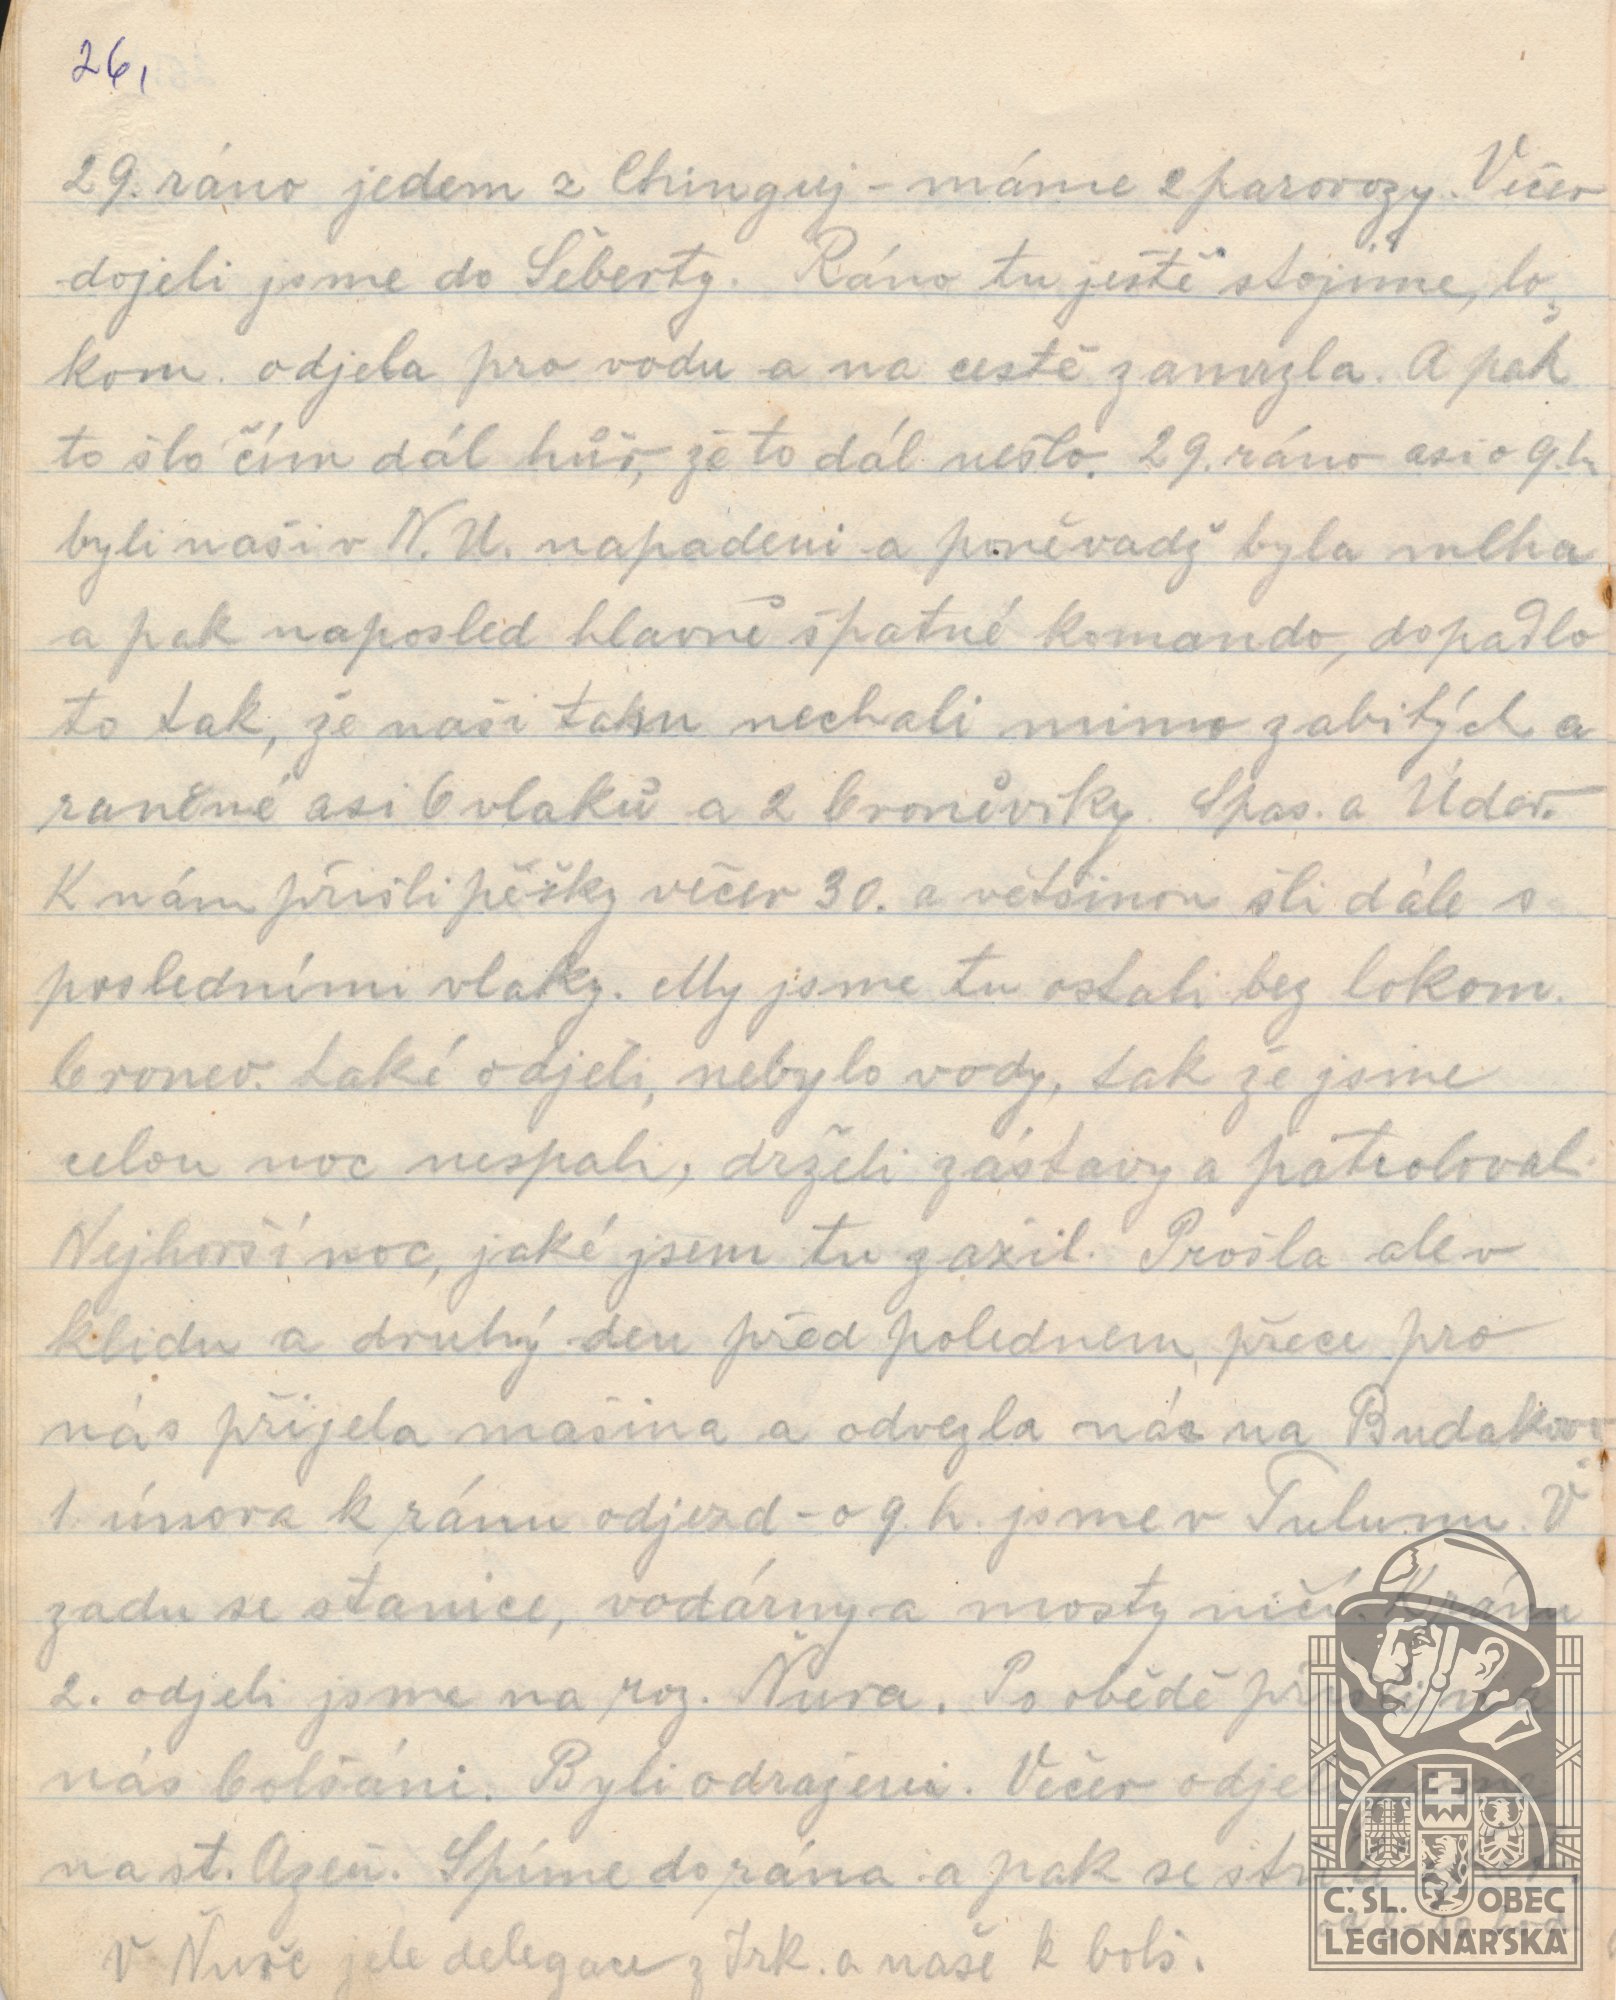 26,
29. ráno jedem z Chinguj - máme 2 parovozy. Večer
dojeli jsme do Šeberty. Ráno tu ještě stojíme, lo-
kom. odjela pro vodu a na cestě zamrzla. A pak
to šlo čím dál hůř, že to dál nešlo. 29. ráno asi o 9. h
byli naši v N. U. napadeni a poněvadž byla mlha
a pak naposled hlavně špatné komando, dopadlo
to tak, že naši tam nechali mimo zabitých a
raněné asi 6 vlaků a 2 broněviky. Spas. a Úder.
K nám přišli pěšky večer 30. a většinou šli dále s
posledními vlaky. My jsme tu ostali bez lokom.
bronev. také odjeli, nebylo vody, tak že jsme
celou noc nespali, drželi zástavy a patroloval.
Nejhorší noc, jaké jsem tu zažil. Prošla ale v
klidu a druhý den před polednem přece pro
nás přijela mašina a odvezla nás na
1. února k ránu odjezd - o 9. h. jsme v Tulunu. V
zadu se stanice, vodárny a mosty ničí. K ránu
2. odjeli jsme na roz. Ňura. Po obědě přišli na
nás bolšáni. Byli odraženi. Večer odjeli jsme
na st. Azeň. Spíme do rána a pak se
V Ňuře jele delegace z Irk. a naše k bolš.
Č. SL. OBEC
LEGIONÁŘSKÁ